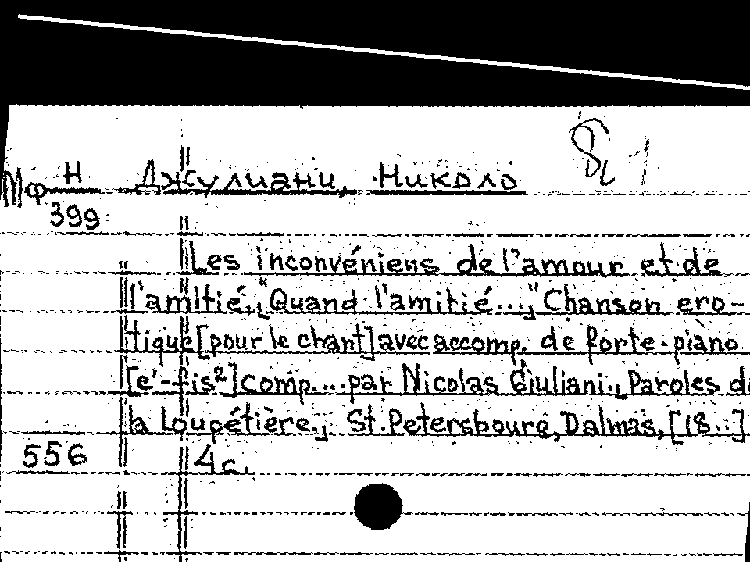 Мф Н Джулиани, Николо
399
Les inconvéniens de l'amour et de
l'amitié. „Quand l'amitié..." Chanson ero-
tique [pour le chant] avec accomp. de forte-piano
[e'-fis²] comp.... par Nicolas Giuliani. Paroles de
la Loupétière. St. Petersbourg, Dalmas, [18..]
556 4 с.